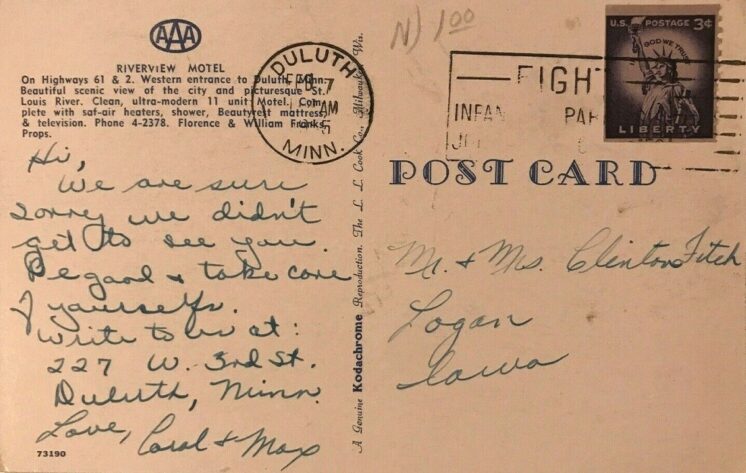 AAA
RIVERVIEW MOTEL
On Highways 61 & 2. Western entrance to Duluth, Minn.
Beautiful scenic view of the city and picturesque St.
Louis River. Clean, ultra-modern 11 unit Motel. Com-
plete with saf-air heaters, shower, Beautyrest mattress,
& television. Phone 4-2378. Florence & William Franks,
Props.
Hi,
We are sure
sorry we didn't
get to see you.
Be good & take care
of yourselfs.
Write to us at:
227 W. 3rd St.
Duluth, Minn.
Love, Carol & Max
73190
DULUTH
FEB 7
AM
MINN.
A Genuine Kodachrome Reproduction. The L. L. Cook Co., Milwaukee, Wis.
N) 1 00
FIGHT
INFAN PAR
U.S. POSTAGE 3¢
IN GOD WE TRUST
LIBERTY
POST CARD
Mr. & Mrs. Clinton Fitch
Logan
Iowa